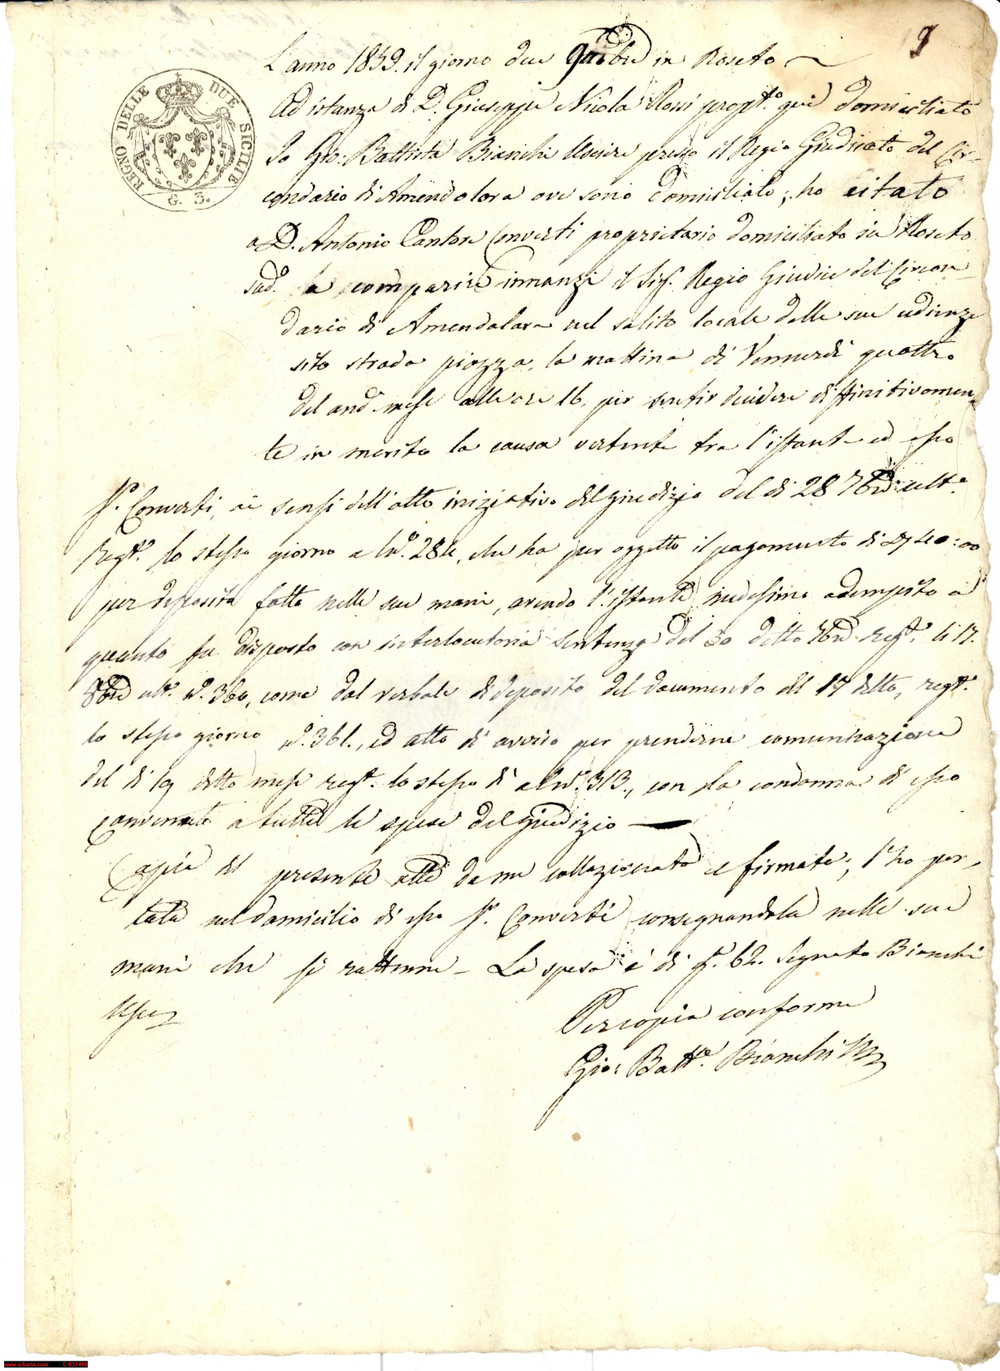 REGNO DELLE DUE SICILIE
G. 3.
9
L'anno 1839. il giorno due 9mbre in Roseto
Ad istanza di D. Giuseppe Nicola Rossi propr.o quì domiciliato
Io Gio: Battista Bianchi Usciere presso il Regio Giudicato del Cir-
condario di Amendolara ove sono domiciliato, ho citato
a D. Antonio Converti proprietario domiciliato in Roseto
sud.o a comparire innanzi il Sig. Regio Giudice del Circon-
dario di Amendolara nel solito locale delle sue udienze
sito strada piazza, la mattina di Vennerdì quattro
del and. mese alle ore 16. per sentir decidere diffinitivamen-
te in merito la causa vertente tra l'istante ed esso
S.r Converti, ai sensi dell'atto iniziativo del giudizio del dì 28 7bre
reg.to lo stesso giorno a N.o 284, che ha per oggetto il pagamento di 40:00
per deposito fatto nelle sue mani, avendo l'istante medesimo adempito a
quanto fu disposto con interlocutoria sentenza del 30 detto 7bre reg.to li 17.
8bre N.o 360, come dal verbale di deposito del documento del 17 detto, reg.to
lo stesso giorno N.o 361., ed atto di avviso per prenderne comunicazione
del dì 19 detto mese reg.to lo stesso dì al N.o 313., con la condanna di esso
convenuto a tutte le spese del giudizio
Copia del presente atto da me collazionata e firmata, l'ho por-
tata nel domicilio di esso S.r Converti consegnandola nelle sue
mani che si rattenne - La spesa è di g. 62. Segnato Bianchi
Us.re
Per copia conforme
Gio: Batt.a Bianchi